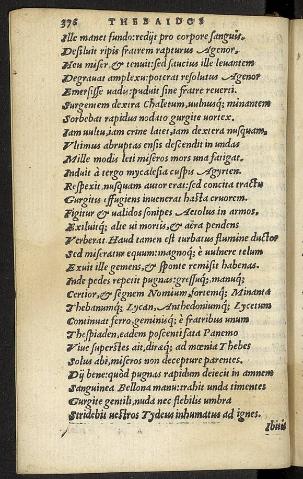 376 THEBAIDOS
Ille manet fundo: redijt pro corpore sanguis.
Desiluit ripis fratrem rapturus Agenor,
Heu miser, & tenuit: sed saucius ille leuantem
Degrauat amplexu: poterat resolutus Agenor
Emersisse uadis: puduit sine fratre reuerti.
Surgentem dextra Chaletum, uulnusq; minantem
Sorbebat rapidus nodato gurgite uortex.
Iam uultu, iam crine latet, iam dextera nusquam,
Vltimus abruptas ensis descendit in undas
Mille modis leti miseros mors una fatigat.
Induit à tergo mycalesia cuspis Agyrten.
Respexit, nusquam autor erat: sed concita tractu
Gurgitis effugiens inuenerat hasta cruorem.
Figitur & ualidos sonipes Aetolus in armos,
Exiluitq; alte ui mortis, & aëra pendens
Verberat. Haud tamen est turbatus flumine ductor
Sed miseratur equum: magnoq; è uulnere telum
Exuit ille gemens, & sponte remisit habenas.
Inde pedes repetit pugnas: gressuq; manuq;
Certior, & segnem Nomium, fortemq; Mimanta
Thebanumq; Lycan, Anthedoniumq; Lycetum
Continuat ferro, geminisq; è fratribus unum
Thespiaden, eadem poscenti fata Panemo
Viue superstes ait, diraq; ad mœnia Thebes
Solus abi, miseros non decepture parentes.
Dij bene: quòd pugnas rapidum deiecit in amnem
Sanguinea Bellona manu: trahit unda timentes
Gurgite gentili, nuda nec flebilis umbra
Stridebit uestros Tydeus inhumatus ad ignes.
Ibitis